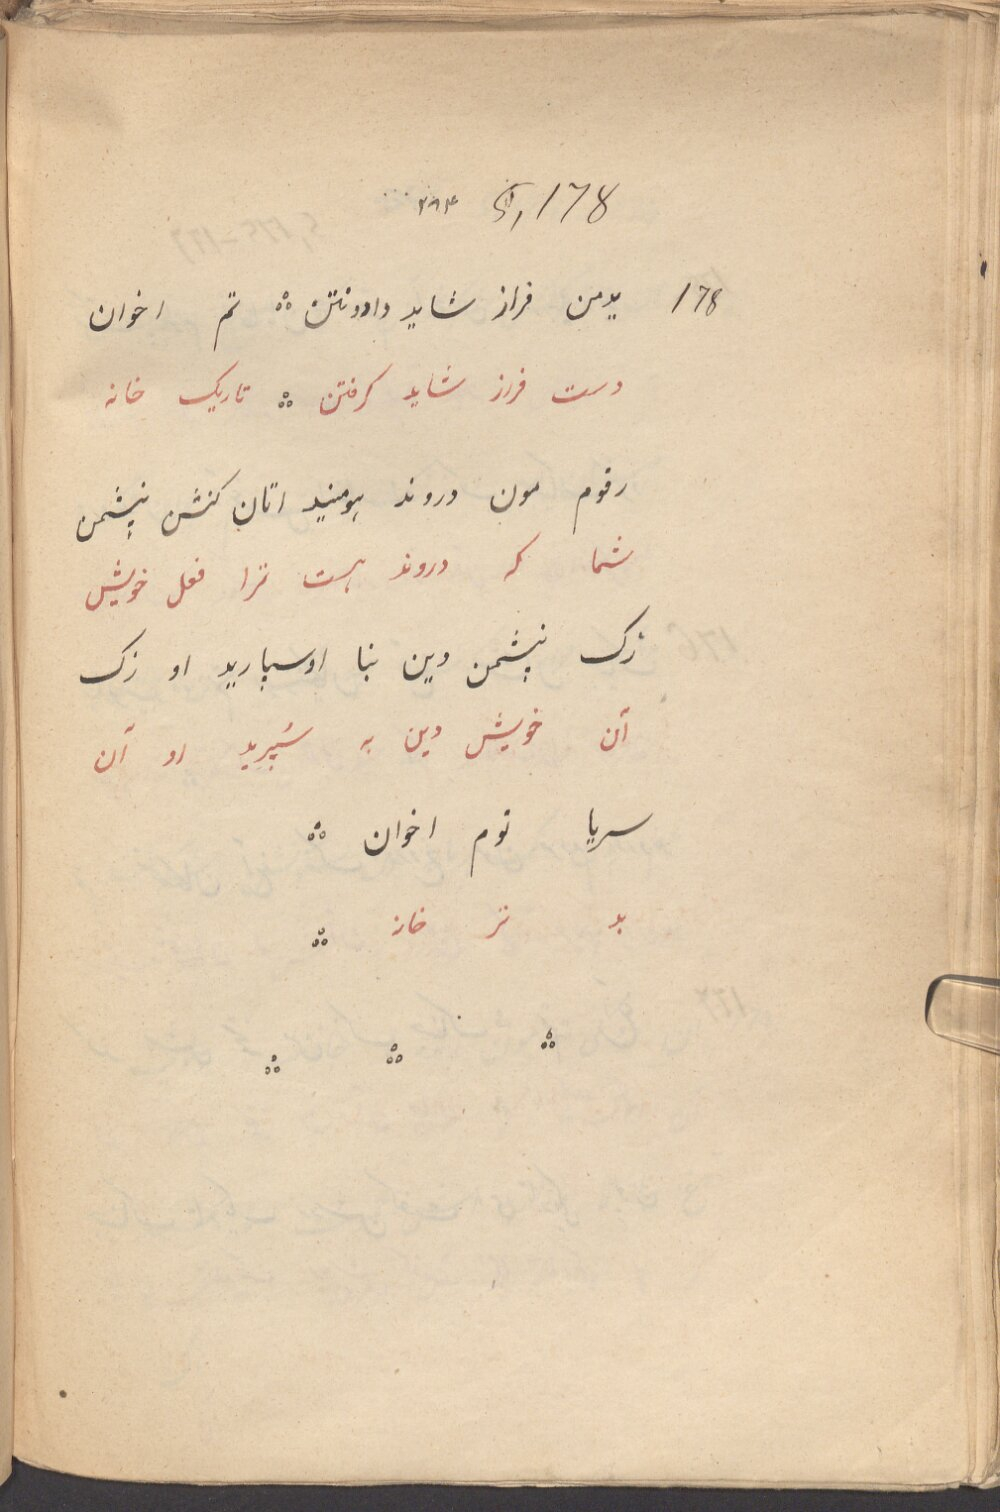 178 ۲۹۴
178 یدمن فراز شاید دادونتن ؞ تم اخوان
دست فراز شاید گرفتن ؞ تاریک خانه
رقوم مون دروند هومنید اتان کنشن نپشمن
شما که دروند هست ترا فعل خویش
زک نپشمن دین بنا اوسپارید او زک
آن خویش دین به سُپرید او آن
سریا توم اخوان ؞
بد تر خانه ؞
؞ ؞ ؞